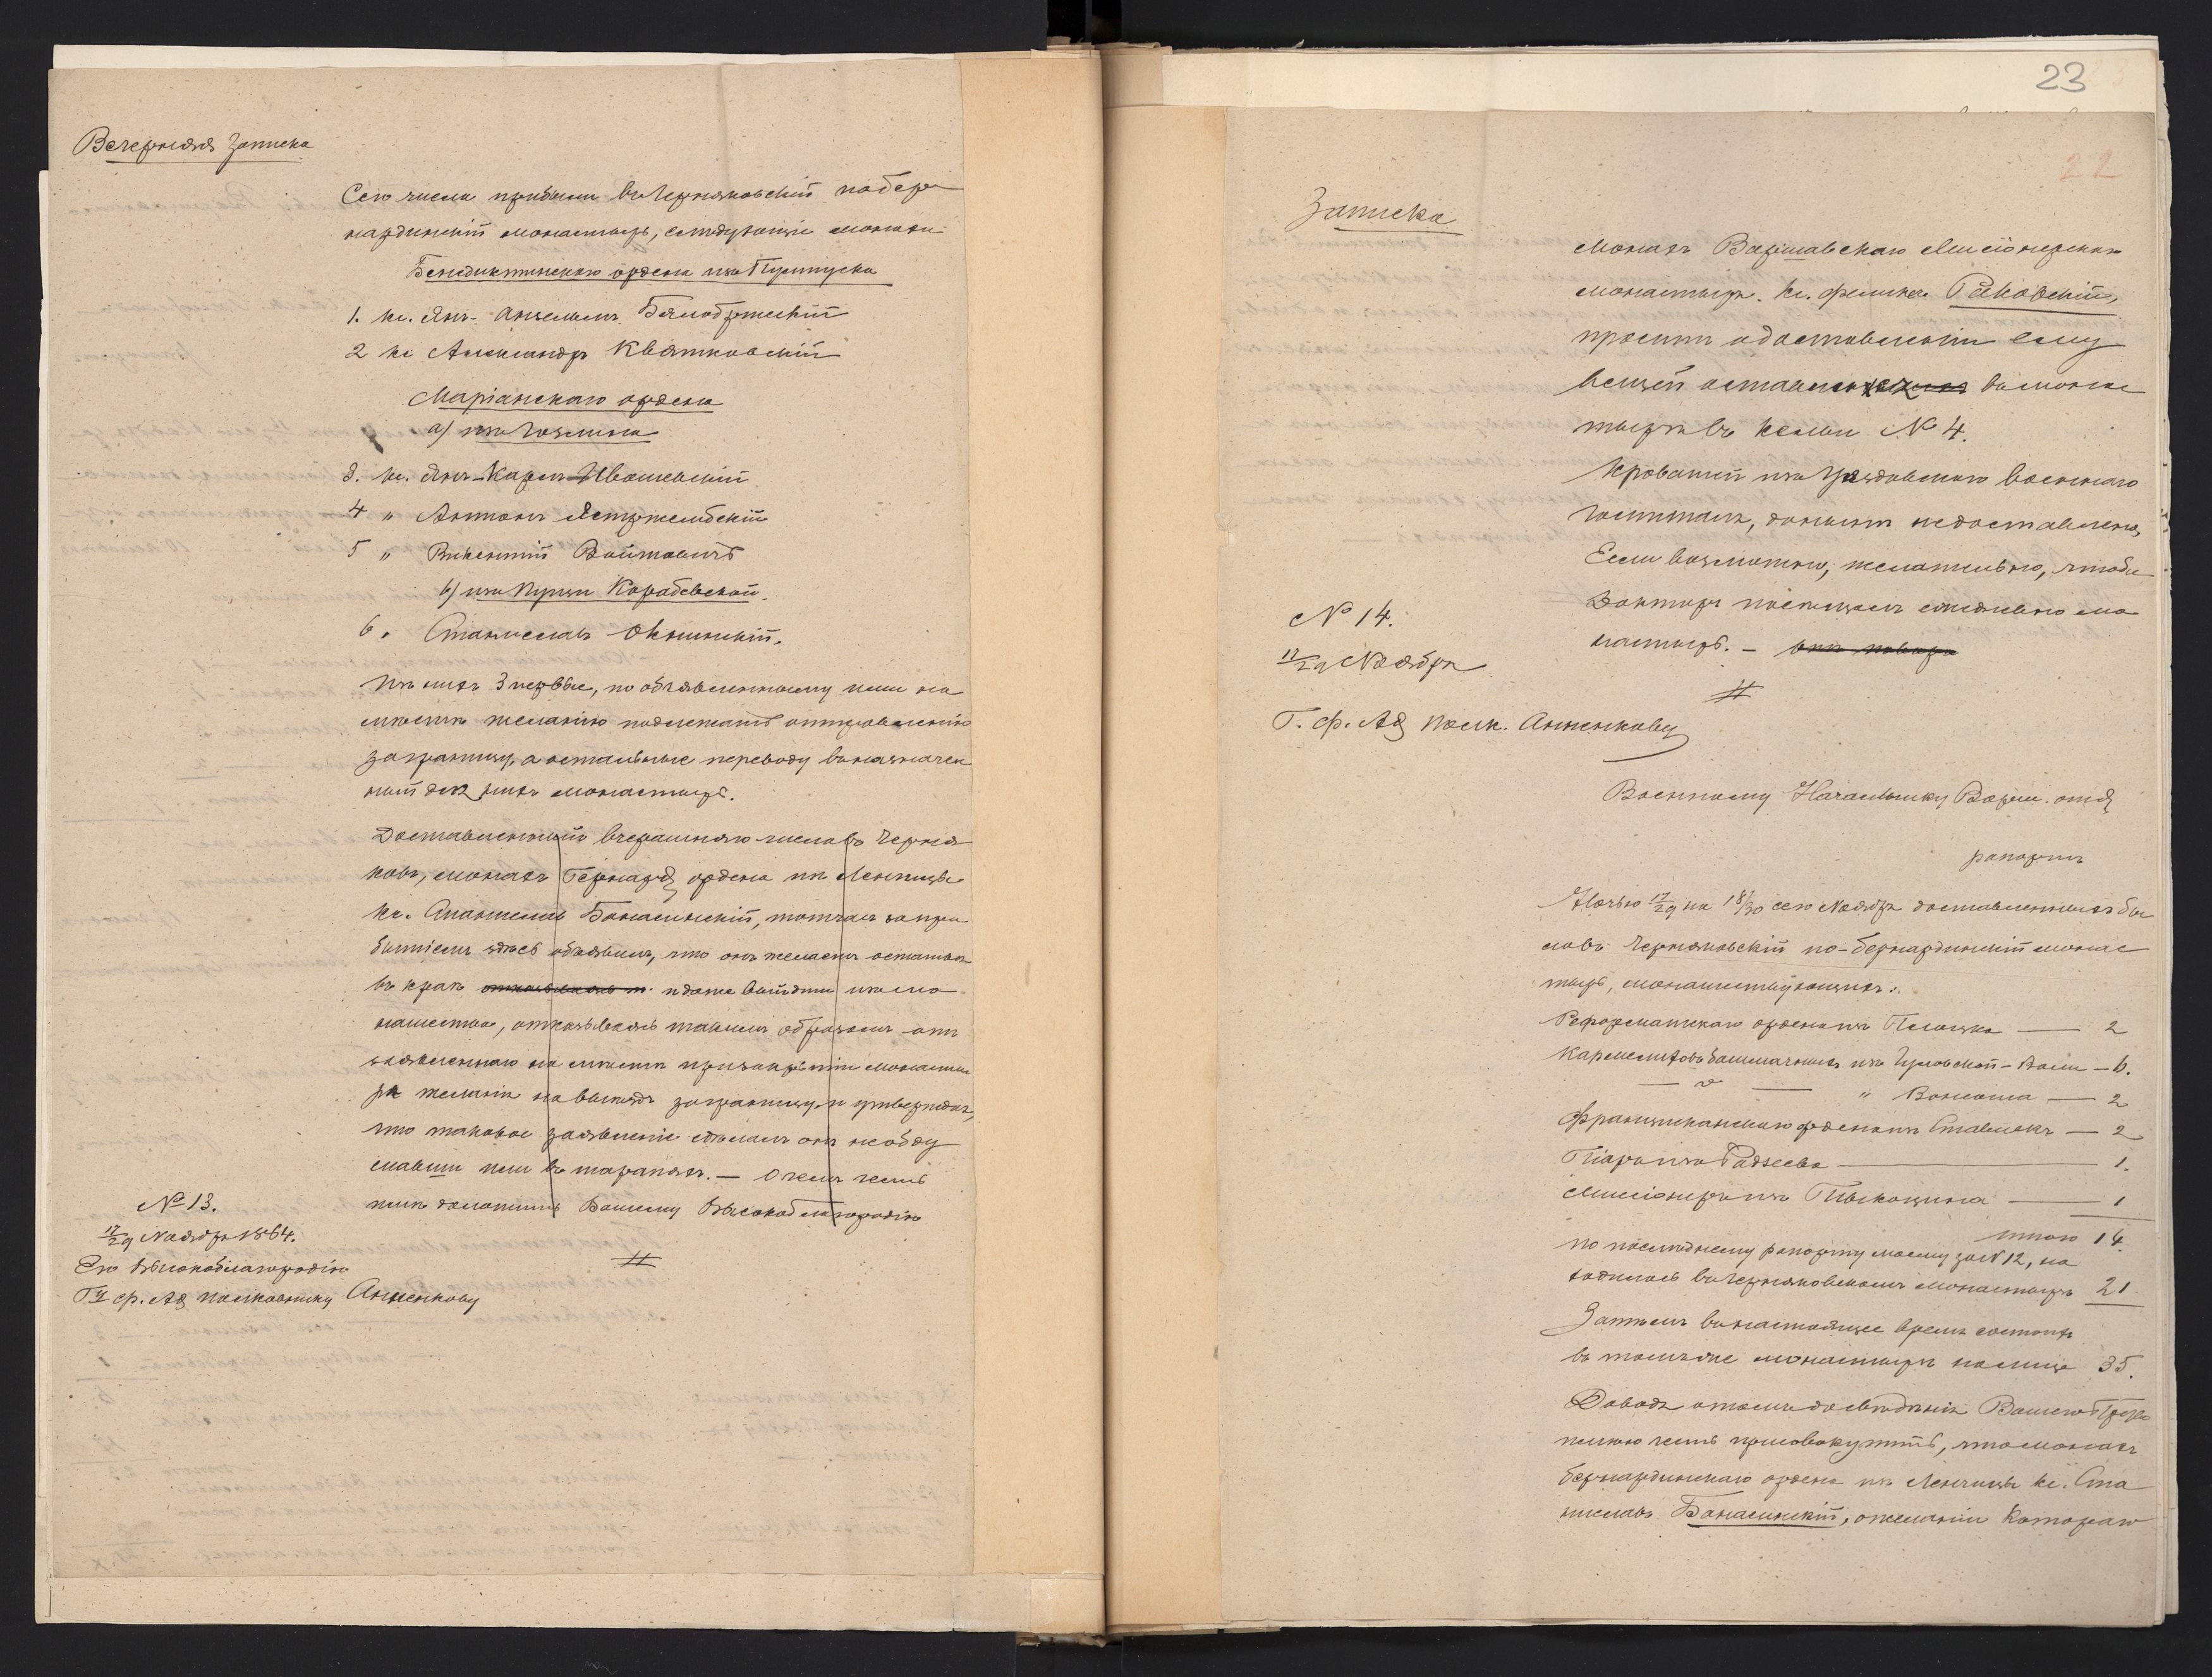 Вечерняя Записка
Сего числа прибыли въ Черняковскій побер
нардинскій монастырь, слѣдующіе монахи
Бенедиктинскаго ордена изъ Пултуска
1. кс. Янъ-Ансельмъ Бялобржескій
2 кс Александръ Квятковскій
Маріанскаго ордена
а) изъ Гозлина
3. кс. Янъ-Карлъ Ивашевскій
4 " Антонъ Ястржембскій
5 " Викентій Войтовичъ
б) изъ Пущи Корабевской.
6 " Станиславъ Окнинскій.
Изъ нихъ 3 первые, по объявленному ими на
мѣстѣ желанію подлежатъ отправленію
заграницу, а остальные переводу въ назначен
ный для нихъ монастырь.
Доставленный вчерашняго числа въ Черня
ковъ, монахъ Бернард ордена изъ Ленчицы
кс. Станиславъ Банасинскій, тотчасъ запри
бытіемъ здѣсь объявилъ, что онъ желаетъ остаться
въ краѣ и даже выйдти изъ мо
нашества, отказываясь такимъ образомъ отъ
заявленнаго на мѣстѣ при закрытіи монасты
ря желанія на выѣздъ заграницу и утверждая,
что таковое заявленіе сдѣлалъ онъ необду
мавши или въ торопяхъ. — О чемъ честь
имѣю доложить Вашему Высокоблагородію
№ 13.
17/29 Ноября 1864.
Его Высокоблагородію
Гну Ф. Ад Полковнику Анненкову
23
22
Записка
Монахъ Варшавскаго Миссіонерскаго
монастыря. кс. Феликсъ Раковскій,
проситъ о доставленіи ему
вещей оставленныхъ въ монас
тырѣ въ кельи № 4.
Кроватей изъ Уяздовскаго военнаго
госпиталя, донынѣ недоставлено,
Если возможно, желательно, чтобы
Докторъ посѣщалъ ежедневно мо
настырь. —
№ 14.
17/29 Ноября
Г. Ф. Ад Полк. Анненкову
Военному Начальнику Варш. отд
рапортъ
Ночью 17/29 на 18/30 сего Ноября доставленныхъ бы
ло въ Черняковскій по-бернардинскій монас
тырь, монашествующихъ:
Реформатскаго ордена изъ Плоцка — 2
Кармелитовъ башмачныхъ изъ Воли — 6.
" — " — 2
Францисканскаго ордена изъ Ставискъ — 2
Піаръ изъ Радзеева — 1.
Миссіонеръ изъ Тыкоцина — 1
итого 14.
По послѣднему рапорту моему за № 12, на
ходилось въ Черняковскомъ монастырѣ 21.
Затѣмъ въ настоящее время состоитъ
въ томъ же монастырѣ налицо 35.
Доводя отомъ до свѣдѣнія Вашего
имѣю честь присовокупить, что монахъ
бернардинскаго ордена изъ Ленчицы кс. Ста
ниславъ Банасинскій, о желаніи котораго